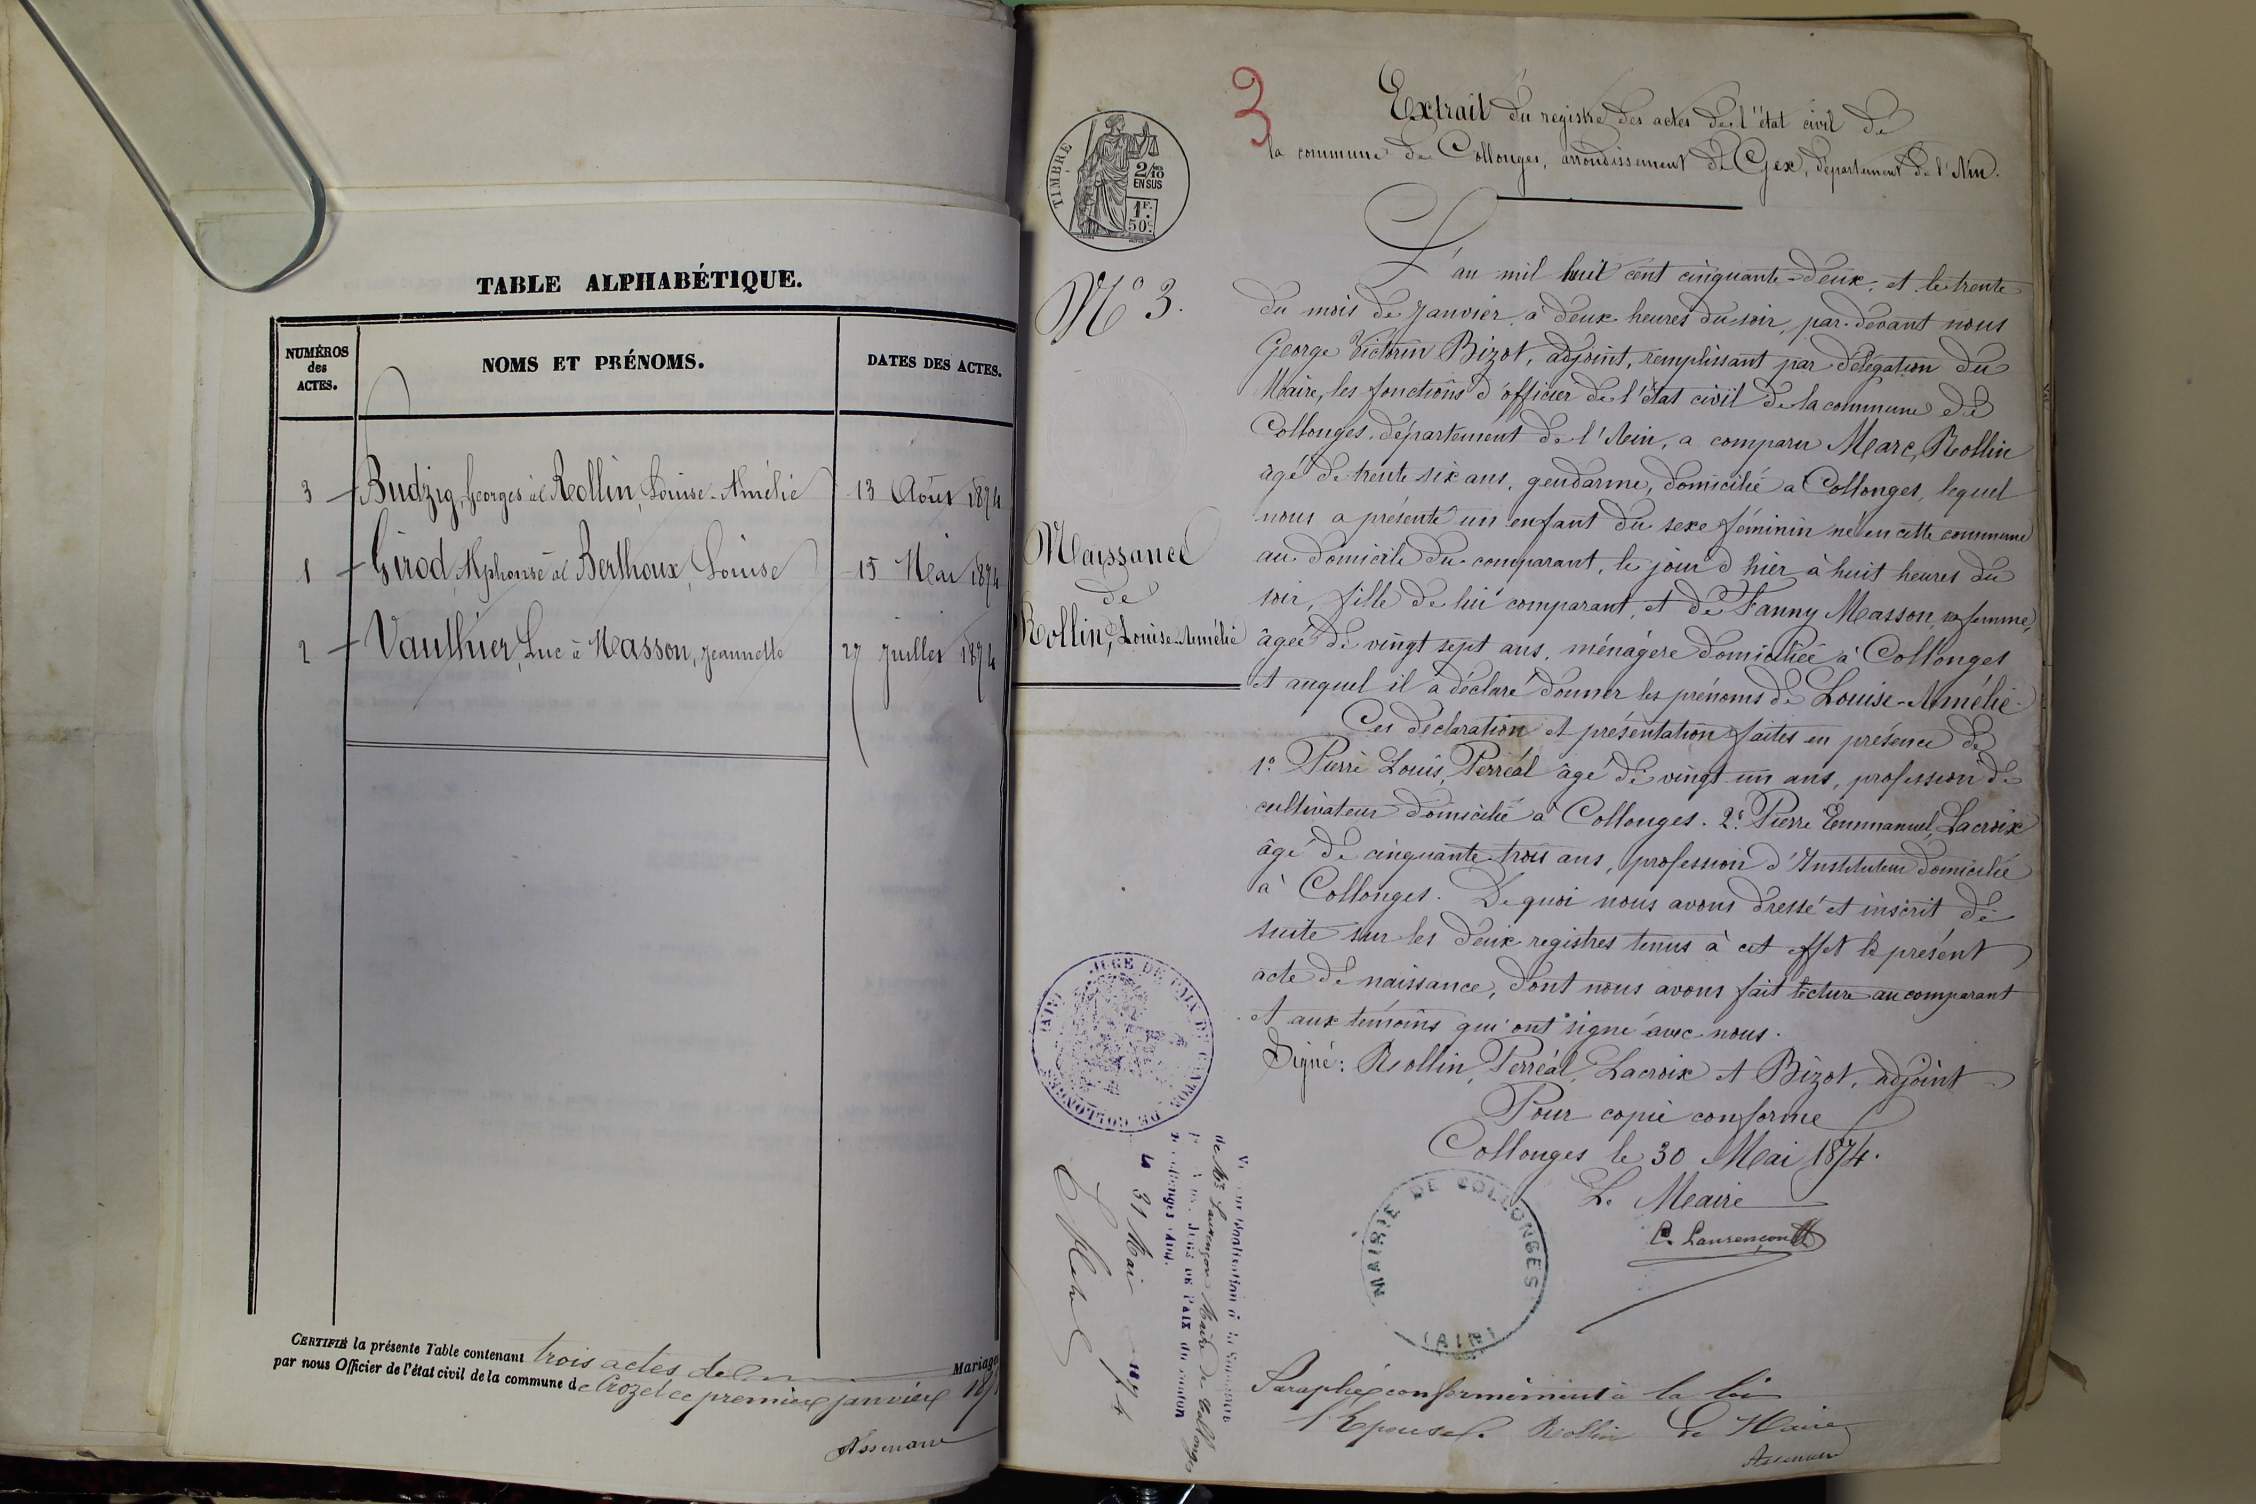 TABLE ALPHABÉTIQUE.
NUMÉROS des ACTES.
NOMS ET PRÉNOMS.
DATES DES ACTES.
3 Budzig, Georges et Rollin, Louise-Amélie 13 Août 1874
1 Girod, Alphonse et Berthoux, Louise 15 Mai 1874
2 Vauthier, Luc à Masson, Jeannette 27 Juillet 1874
CERTIFIÉ la présente Table contenant trois actes de Mariage
par nous Officier de l'état civil de la commune de Crozet ce premier janvier
3
TIMBRE
2/10
EN SUS
1F.
50c.
Extrait du registre des actes de l'état civil de
la commune de Collonges, arrondissement de Gex, département de l'Ain.
No 3.
Naissance
de
Rollin, Louise-Amélie
L'an mil huit cent cinquante-deux, et le trente
du mois de Janvier, à deux heures du soir, par-devant nous
George Victorin Bizot, adjoint, remplissant par délégation du
Maire, les fonctions d'officier de l'état civil de la commune de
Collonges, département de l'Ain, a comparu Marc, Rollin
âgé de trente six ans, gendarme, domicilié à Collonges, lequel
nous a présenté un enfant du sexe féminin né en cette commune
au domicile du comparant, le jour d'hier à huit heures du
soir, fille de lui comparant, et de Fanny Masson, sa femme,
âgée de vingt sept ans, ménagère domiciliée à Collonges
et auquel il a déclaré donner les prénoms de Louise-Amélie.
Ces déclaration et présentation faites en présence de
1o Pierre Louis, Perréal âgé de vingt-un ans, profession de
cultivateur domicilié à Collonges. 2o Pierre Emmanuel, Lacroix
âgé de cinquante trois ans, profession d'Instituteur domicilié
à Collonges. De quoi nous avons dressé et inscrit de
suite sur les deux registres tenus à cet effet le présent
acte de naissance, dont nous avons fait lecture au comparant
et aux témoins qui ont signé avec nous.
Signé: Rollin, Perréal, Lacroix et Bizot, adjoint
Pour copie conforme
Collonges le 30 Mai 1874.
Le Maire
C. Laurençon
MAIRIE DE COLLONGES
(AIN)
JUGE DE PAIX DU CANTON DE COLLONGES (AIN)
légalisation de la Signature
de Mr Laurençon Maire de Collonges
JUGE DE PAIX du canton
de Collonges (Ain).
Le 31 Mai 1874
Paraphé conformément à la loi
l'Epouse. Rollin Le Maire